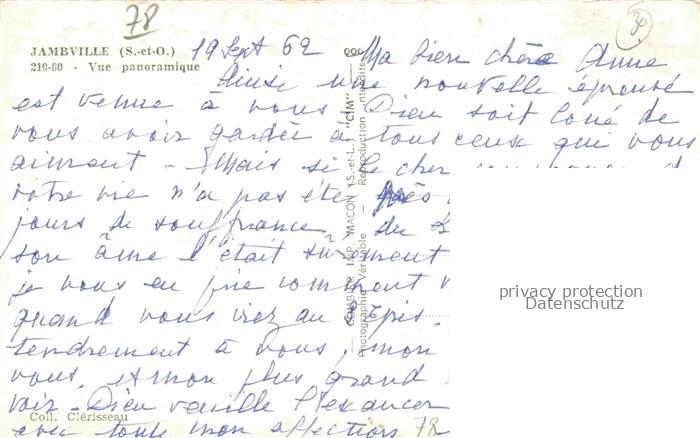 78
30
JAMBVILLE (S.-et-O.) 19 Sept 62 Ma bien chère Anne
210-60 - Vue panoramique
Ainsi une nouvelle épreuve
est venue à vous Dieu soit loué de
vous avoir gardée à tous ceux qui vous
aiment - Mais si le cher
votre vie n'a pas été près
jours de souffrance du
son âme l'était sûrement
je vous en prie comment
quand vous irez au
tendrement à vous, mon
vous, à mon plus grand
voir - Dieu veuille l'exaucer
Coll. Clérisseau
avec toute mon affection 78
COMBIER IMP. MACON (S.-et-L.) "CIM"
Photographie Véritable - Reproduction interdite
privacy protection
Datenschutz